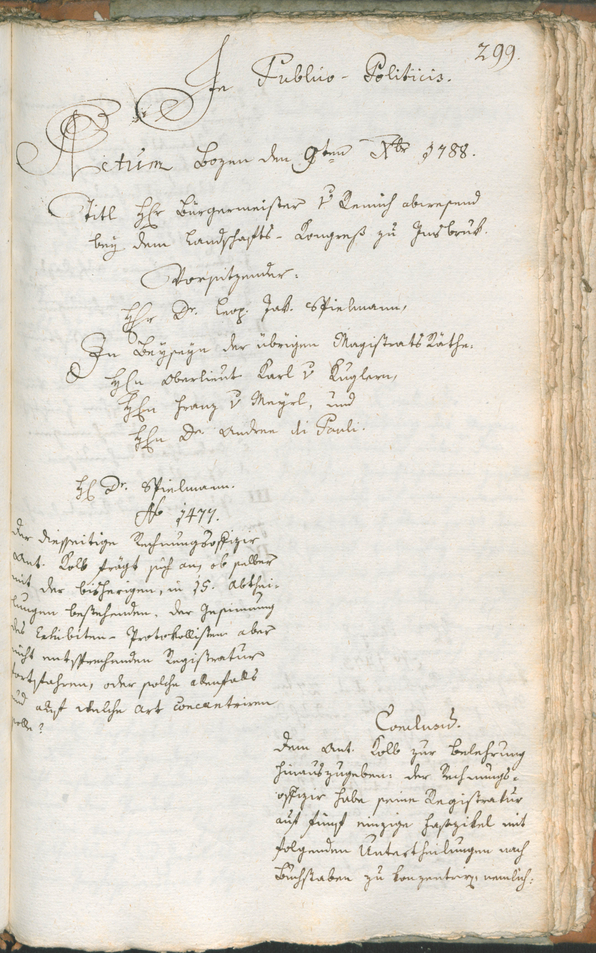 299.
In Publico-Politicis.
Actum Bozen den 9ten Xbr 1788.
Titl Hr Bürgermeister v Remich abwesend
bey dem Landschafts-Kongreß zu Insbruk.
Vorsitzender:
Hr Dr. Leop. Jak. Spielmann,
In Beyseyn der übrigen Magistrats Räthe.
Hn Oberlieut Karl v Kuglern,
Hn Franz v Mayrl, und
Hn Dr Andree di Pauli.
H Dr. Spielmann.
No 1477.
Der diesseitige Rechnungsoffizier
Ant. Kolb frägt sich an, ob selber
mit der bisherigen, in 15. Abthei-
lungen bestehenden, der Gesinnung
des Exhibiten-Protokollisten aber
nicht entsprechenden Registratur
fortfahren, oder solche allenfalls
und auf welche Art concentriren
solle?
Conclusum.
Dem Ant. Kolb zur Belehrung
hinauszugeben: der Rechnungs-
offizier habe seine Registratur
auf fünf einzige Faszikel mit
folgenden Unterteilungen nach
Buchstaben zu konzentrirn, nemlich: